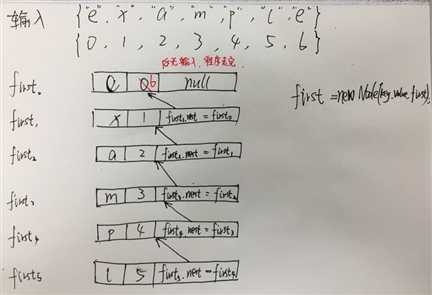 输入 {"e", "x", "a", "m", "p", "l", "e"}
{0, 1, 2, 3, 4, 5, 6}
first₀ e 0 6 null
first₁ x 1 first₁.next = first₀
first = new Node(key, value, first);
first₂ a 2 first₂.next = first₁
first₃ m 3 first₃.next = first₂
first₄ p 4 first₄.next = first₃
first₅ l 5 first₅.next = first₄